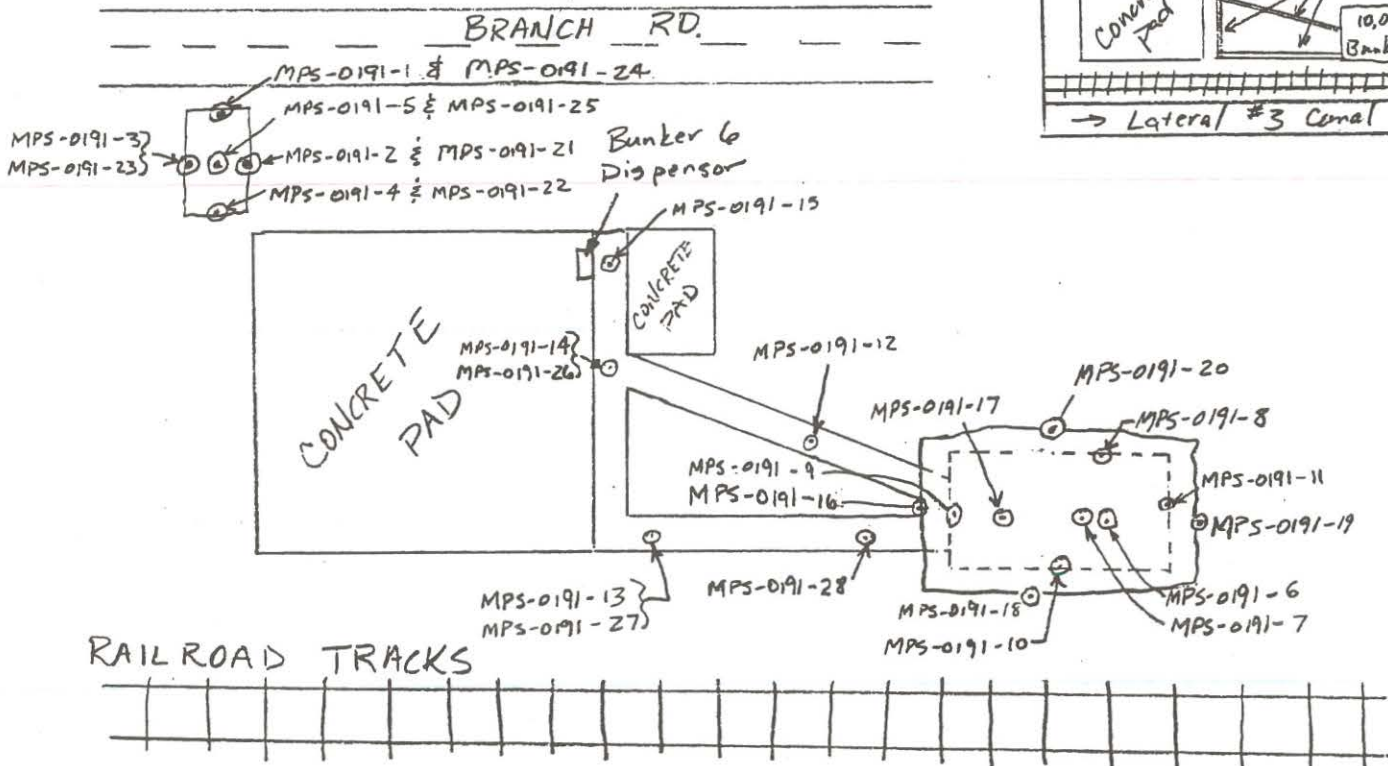 BRANCH RD.
MPS-0191-1 & MPS-0191-24
MPS-0191-5 & MPS-0191-25
MPS-0191-3
MPS-0191-23
MPS-0191-2 & MPS-0191-21
MPS-0191-4 & MPS-0191-22
Bunker 6
Dispensor
MPS-0191-15
CONCRETE
PAD
CONCRETE
PAD
MPS-0191-14
MPS-0191-26
MPS-0191-12
MPS-0191-20
MPS-0191-17
MPS-0191-8
MPS-0191-9
MPS-0191-16
MPS-0191-11
MPS-0191-19
MPS-0191-13
MPS-0191-27
MPS-0191-28
MPS-0191-18
MPS-0191-10
MPS-0191-6
MPS-0191-7
RAILROAD TRACKS
pad
→ Lateral #3 Canal